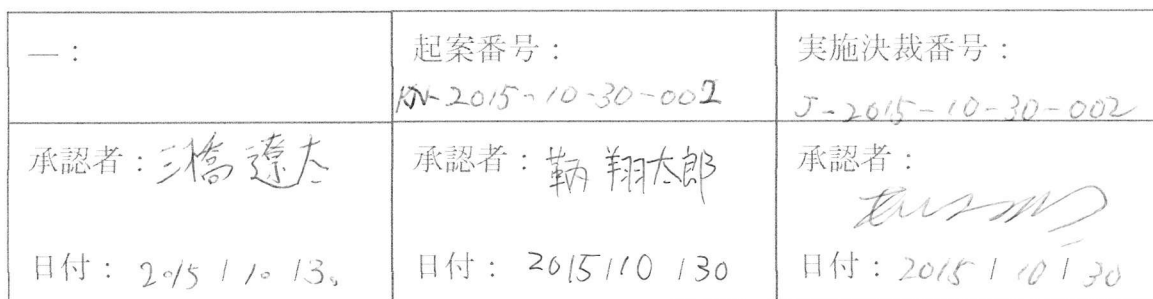 一：
起案番号：
KN-2015-10-30-002
実施決裁番号：
J-2015-10-30-002
承認者：三橋遼太
日付：2015/10/30
承認者：鞆翔太郎
日付：2015/10/30
承認者：
日付：2015/10/30